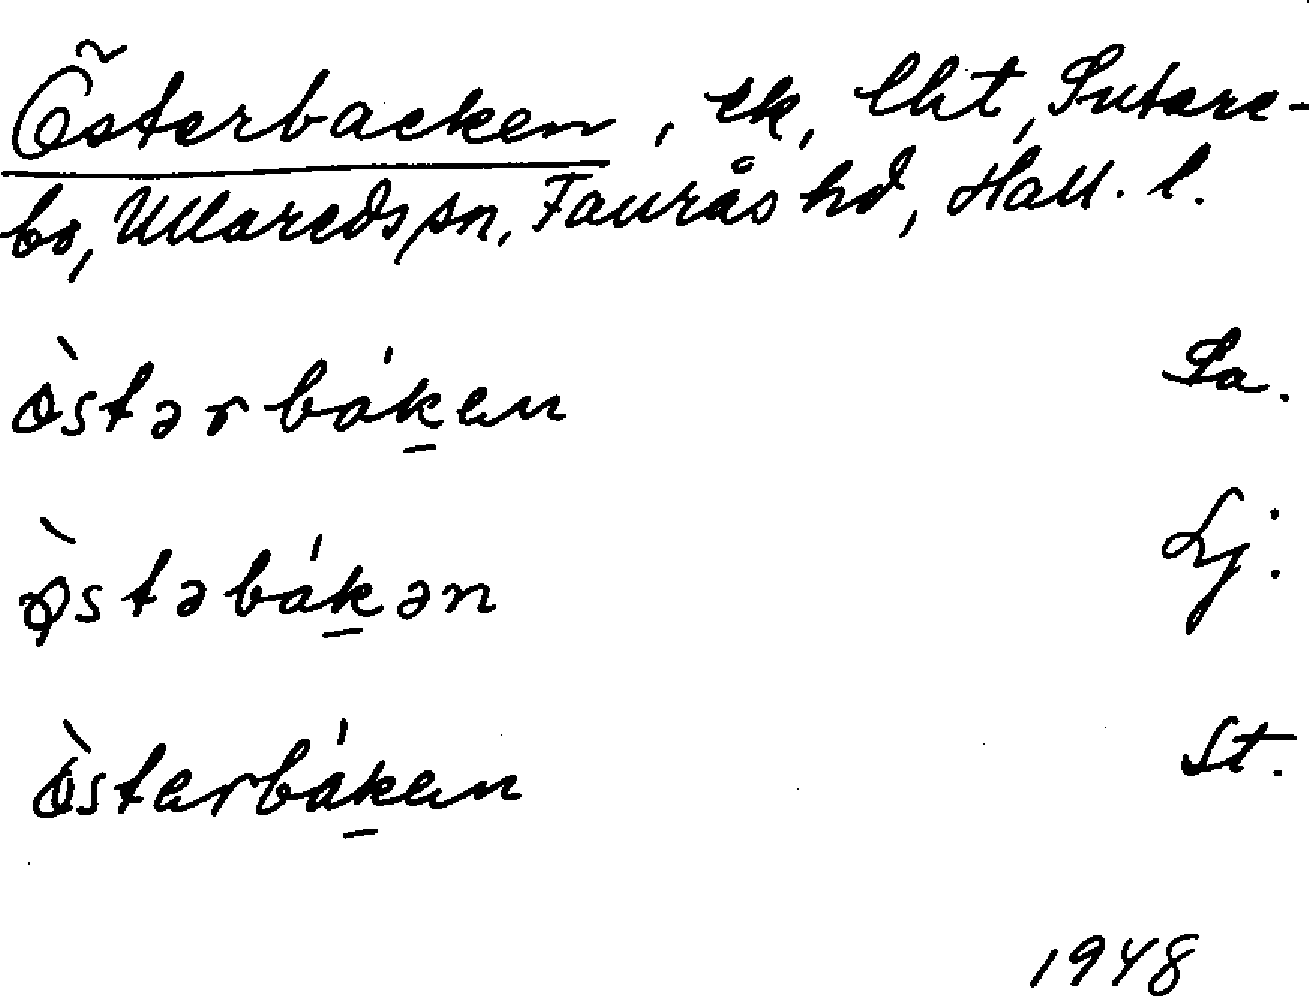 Österbacken, ek, lht, Sutare-
bo, Ullareds sn, Faurås hd, Hall. l.
ò̷stərbák̠en Sa.
ò̷stəbák̠ən Lj.
ò̷sterbák̠en St.
1948